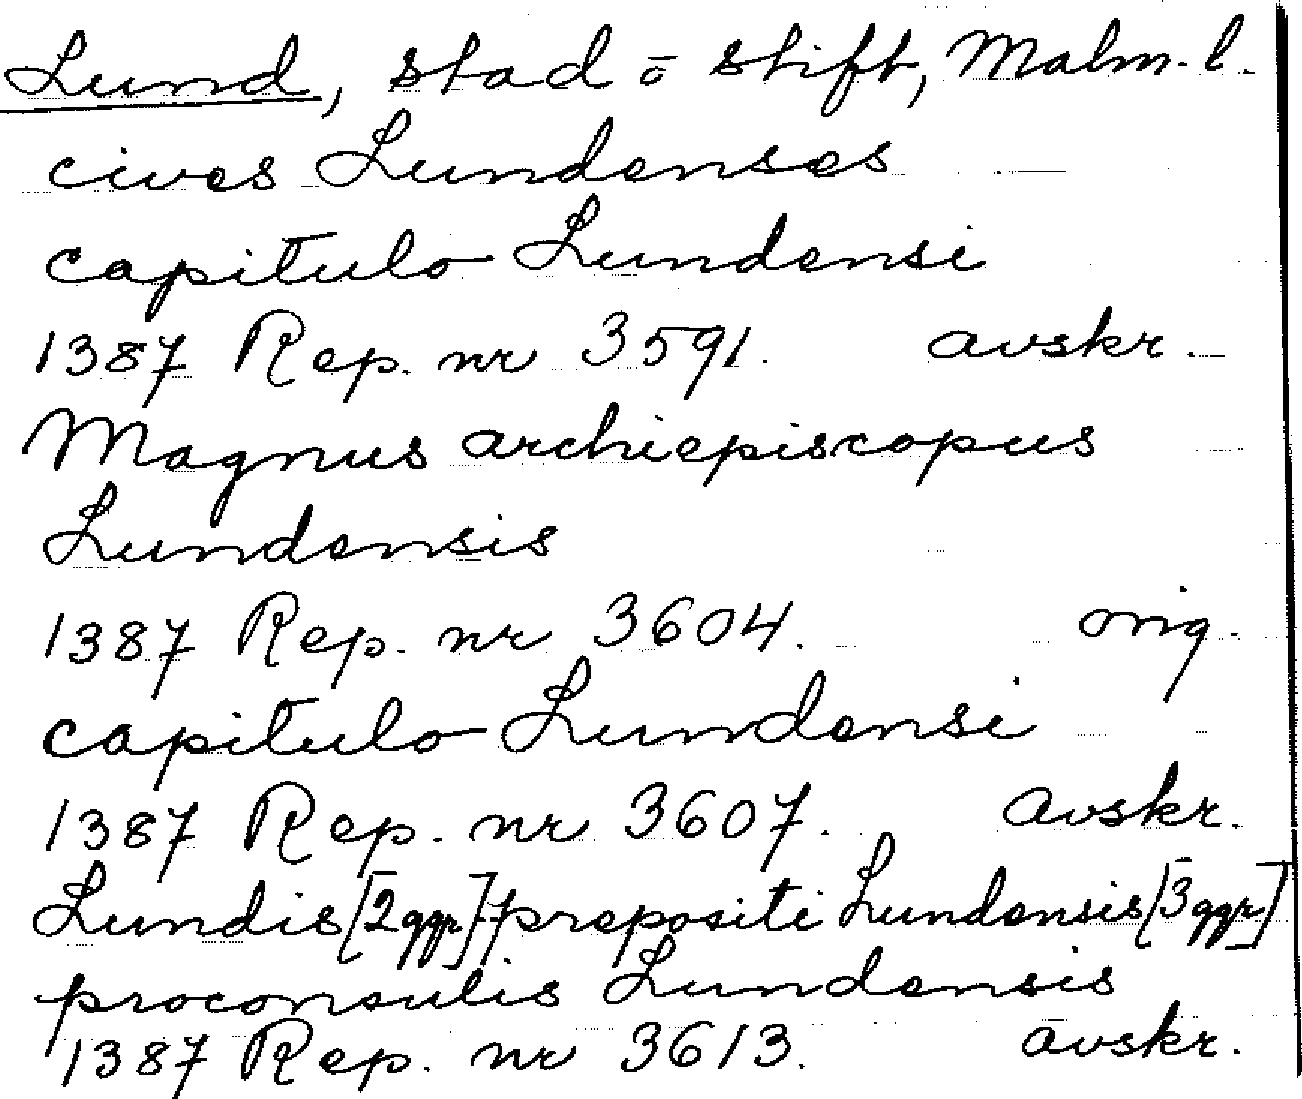 Lund, stad o stift, Malm. l.
cives Lundenses
capitulo Lundensi
1387 Rep. nr 3591. avskr.
Magnus archiepiscopus
Lundensis
1387 Rep. nr 3604. orig.
capitulo Lundensi
1387 Rep. nr 3607. avskr.
Lundis [2 ggr] prepositi Lundensis [3 ggr]
proconsulis Lundensis
1387 Rep. nr 3613. avskr.